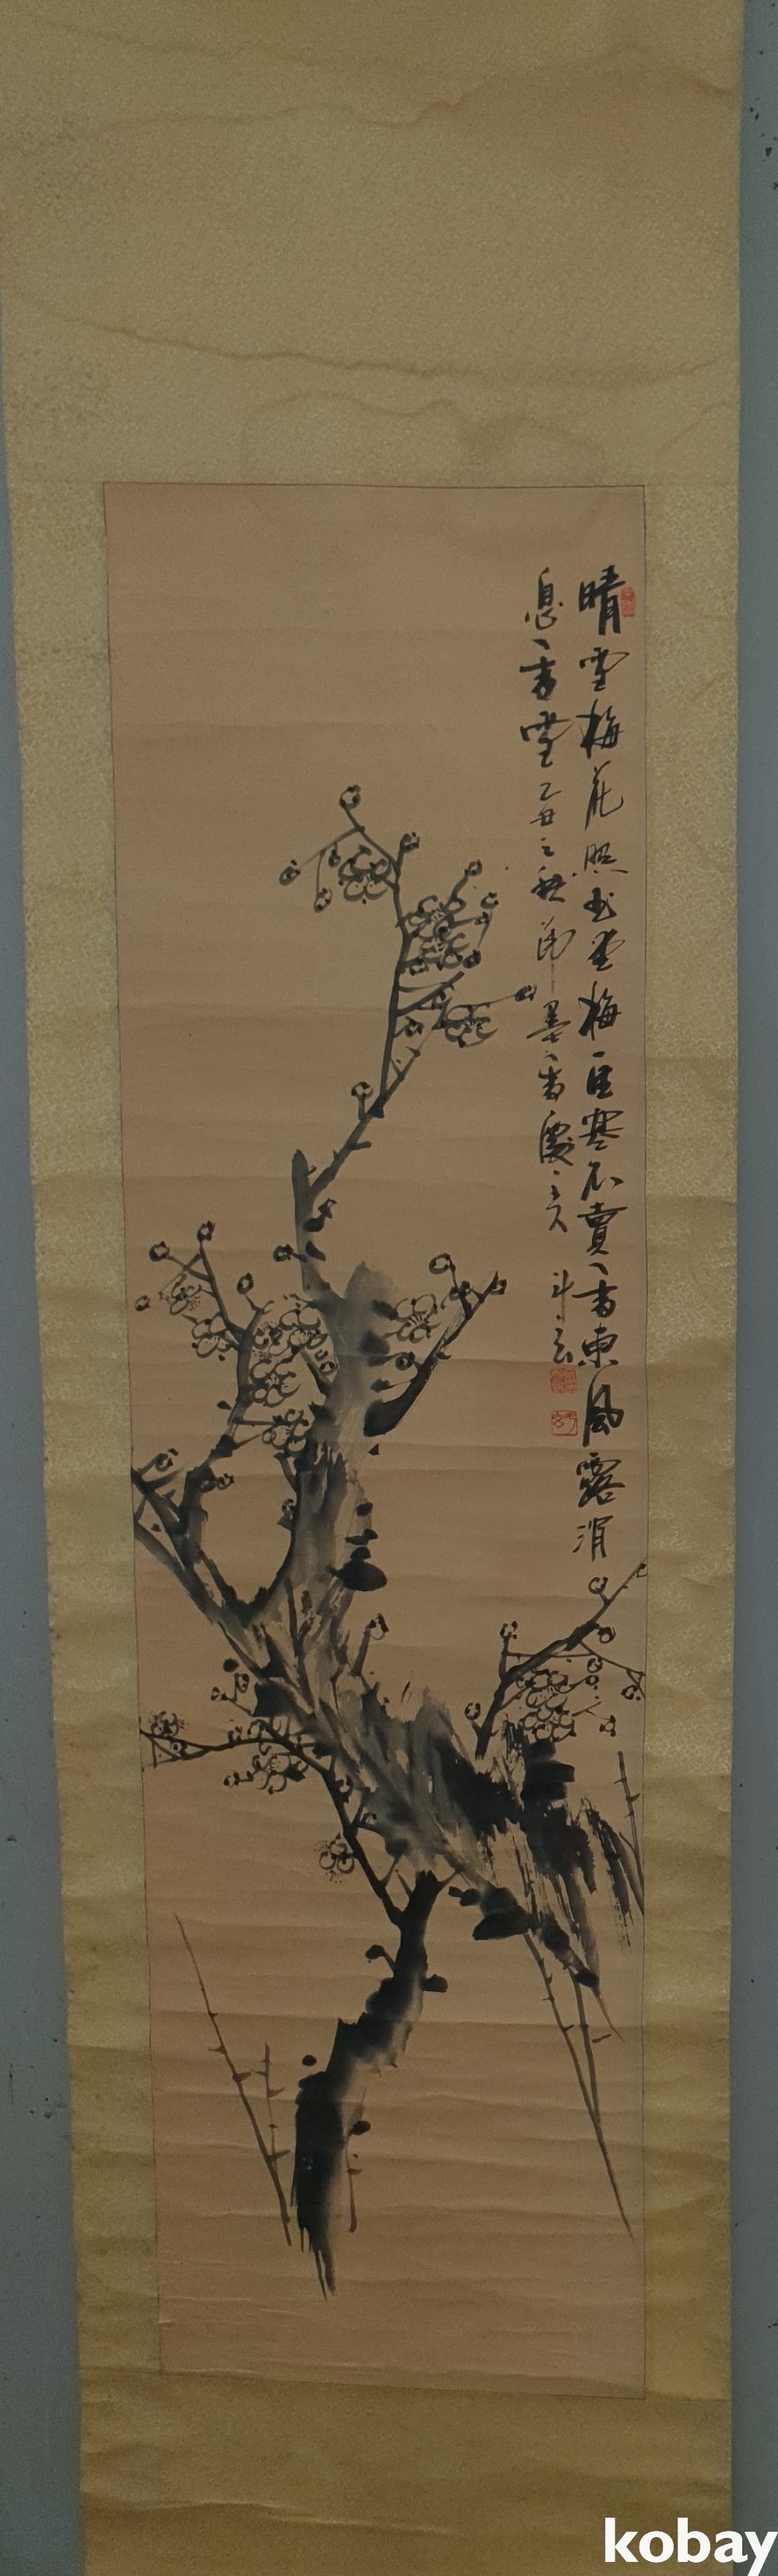 晴雪梅花照書堂梅一生寒不賣香東風露消
息香雪乙丑之秋 墨香處主人 斗云
kobay